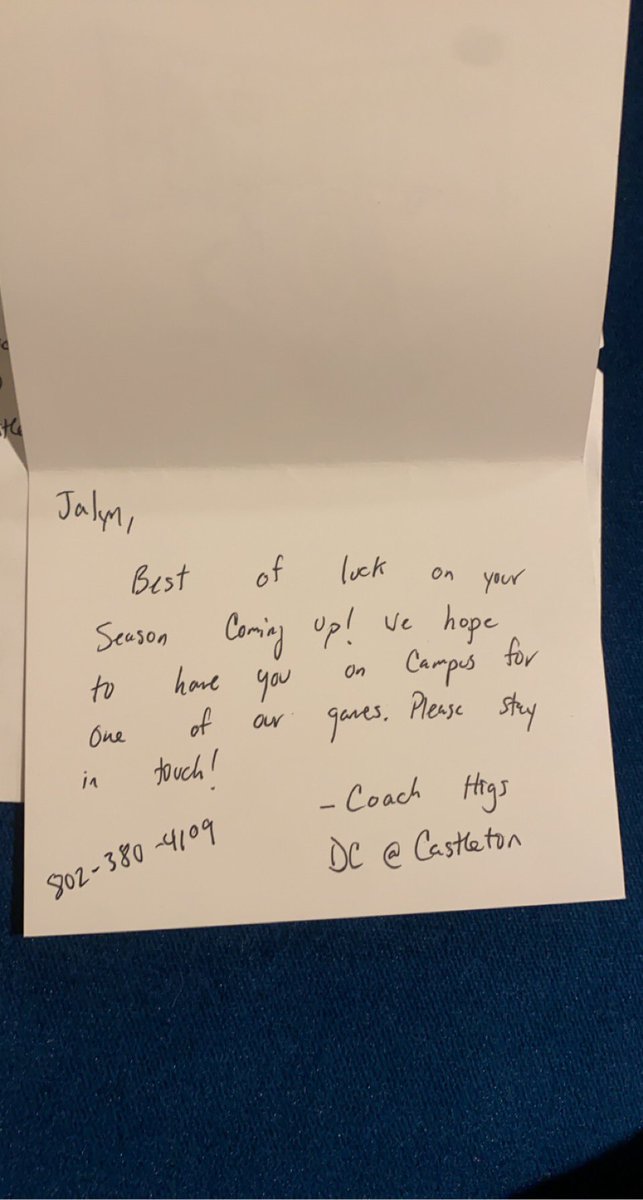 Jalyn,
Best of luck on your
Season Coming up! We hope
to have you on Campus for
one of our games. Please stay
in touch!
- Coach Higs
802-380-4109
DC @ Castleton